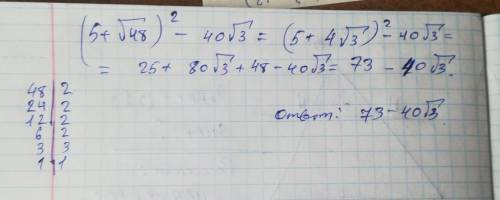 (5+√48)² - 40√3 = (5 + 4√3)² - 40√3 =
= 25 + 80√3 + 48 - 40√3 = 73 - 40√3.
48 | 2
24 | 2
12 | 2
6 | 2
3 | 3
1 | 1
Ответ: 73 - 40√3.